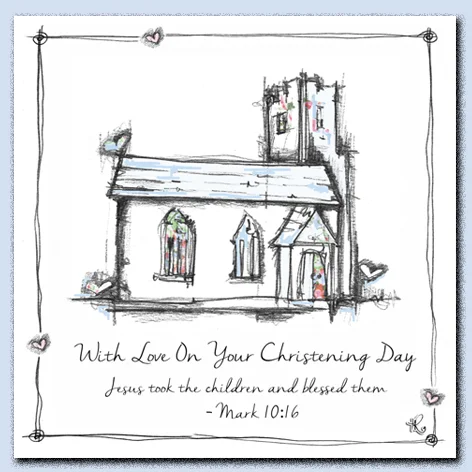 With Love On Your Christening Day
Jesus took the children and blessed them
- Mark 10:16